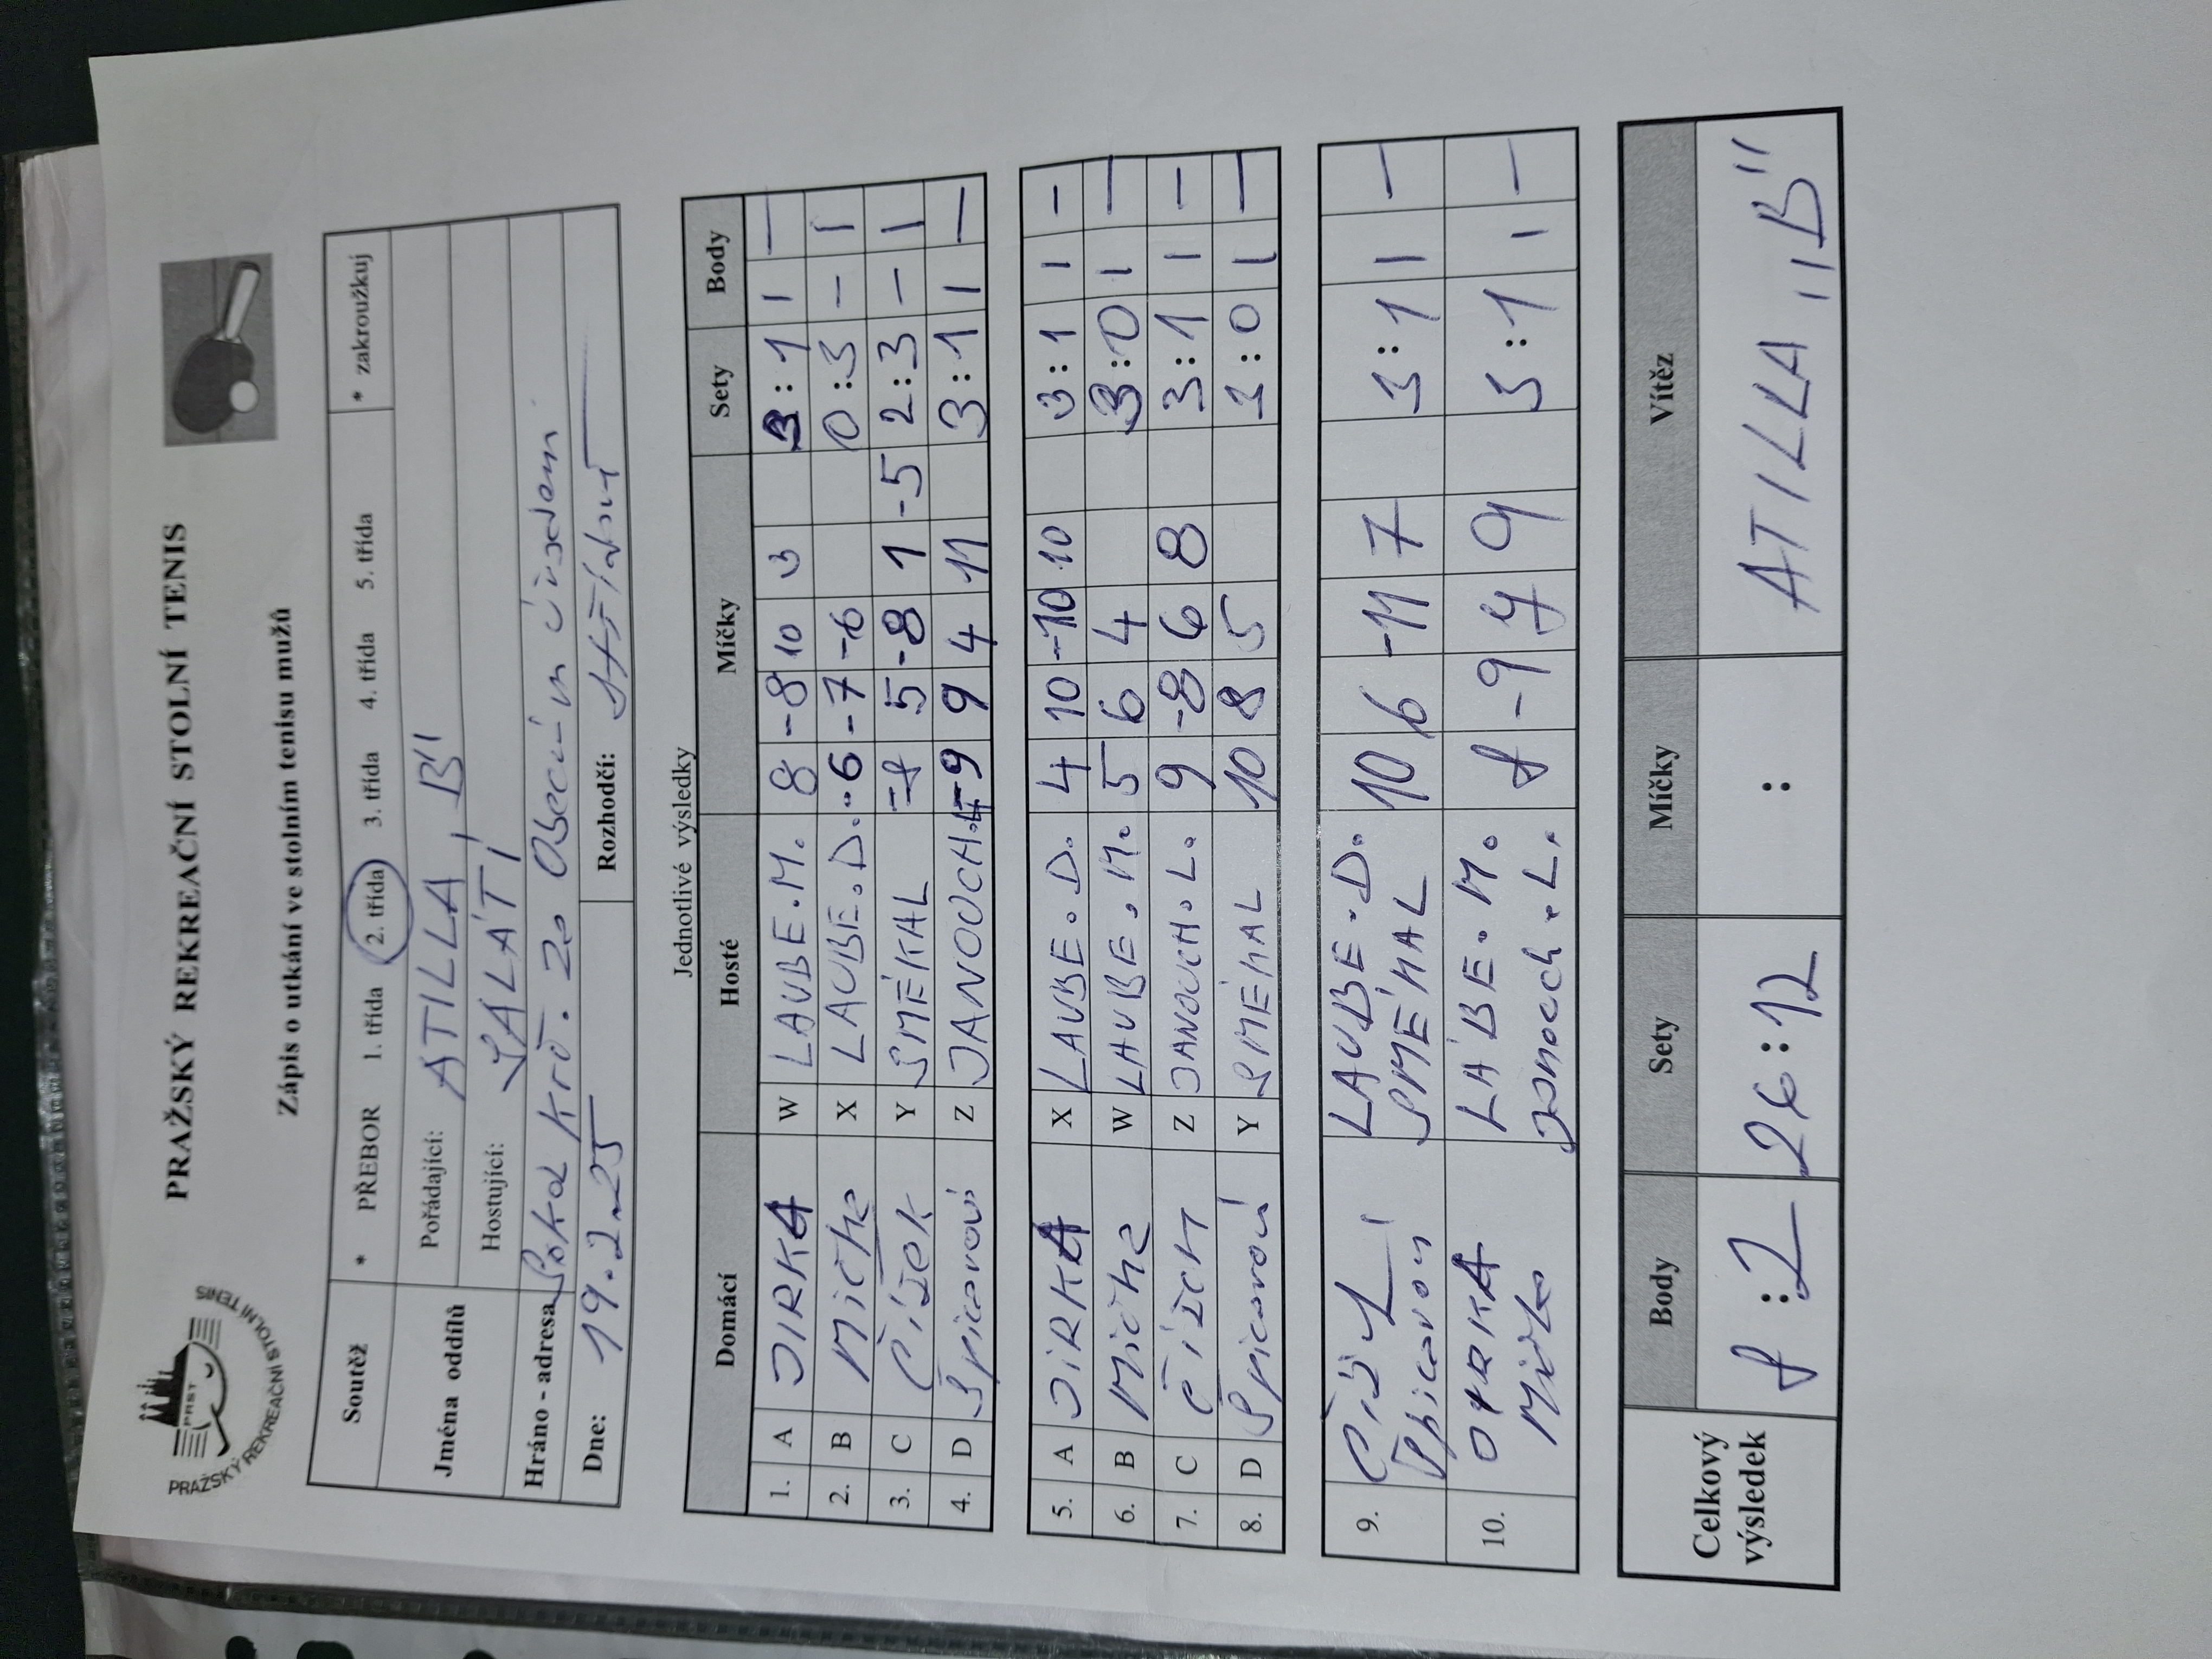 PRAŽSKÝ REKREAČNÍ STOLNÍ TENIS
PRAŽSKÝ REKREAČNÍ STOLNÍ TENIS
PRST
Zápis o utkání ve stolním tenisu mužů
Soutěž * PŘEBOR 1. třída 2. třída 3. třída 4. třída 5. třída * zakroužkuj
Jména oddílů Pořádající: ATILLA "B"
Hostující: SALÁTI
Hráno - adresa Sokol Obecním úřadem
Dne: 19.2.25 Rozhodčí: střídavě
Jednotlivé výsledky
Domácí Hosté Míčky Sety Body
1. A JIRKA W LAUBE.M. 8 -8 10 3 3:1 1 —
2. B Mičke X LAUBE.D. -6 -7 -6 0:3 — 1
3. C Čížek Y SMÉKAL -8 5 -8 1 -5 2:3 — 1
4. D Spicarovi Z JANOUCH.L -9 9 4 11 3:1 1 —
5. A JIRKA X LAUBE.D. 4 10 -10 10 3:1 1 —
6. B Mičke W LAUBE.M. 5 6 4 3:0 1 —
7. C Čížek Z JANOUCH.L. 9 -8 6 8 3:1 1 —
8. D Spicarovi Y SMÉKAL 10 8 5 3:0 1 —
9. LAUBE.D. 10 6 -11 7 3:1 1 —
Spicarovi SMÉKAL
10. JIRKA LÁBE.M. 8 -9 9 3:1 1 —
Mičke Janouch.L.
Celkový výsledek Body Sety Míčky Vítěz
8:2 26:12 : ATILLA "B"